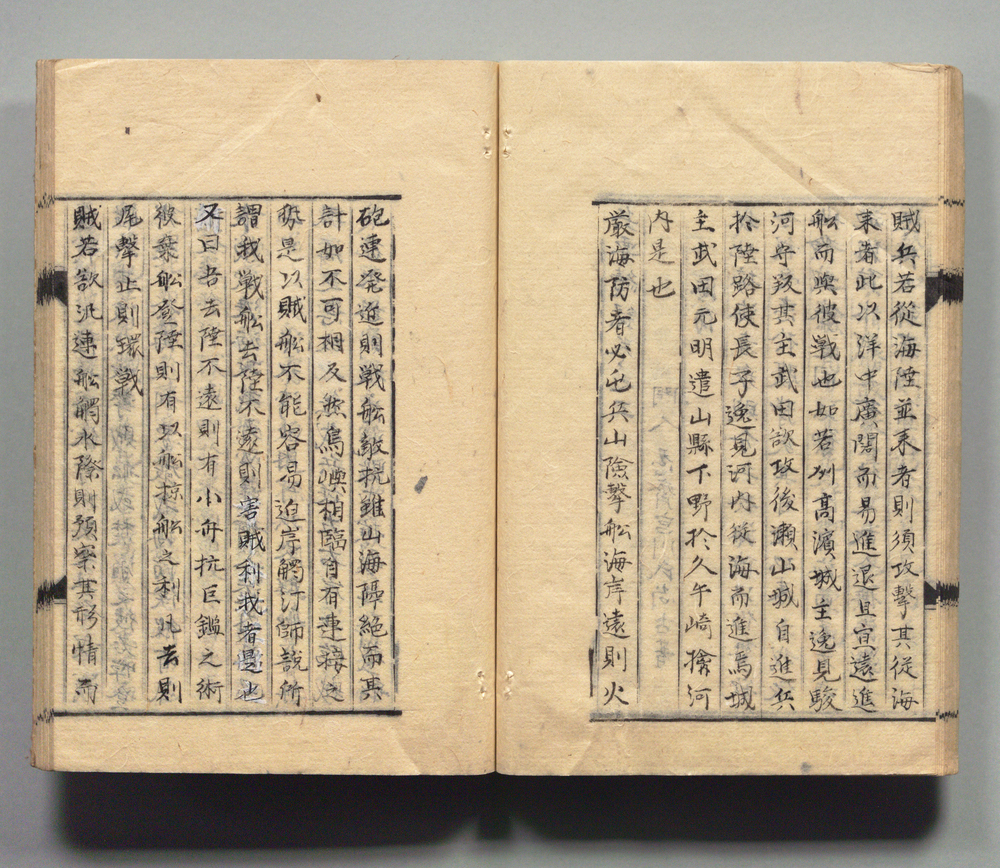 賊兵若從海陸並来者則須攻擊其從海
来者此以洋中廣闊而易進退且宜遠進
舩而與彼戦也如若列髙濱城主逸見駿
河守叛其主武田欲攻後瀬山城自進兵
於陸路使長子逸見河内從海而進焉城
主武田元明遣山縣下野於久午崎擒河
内是也
厳海防者必屯兵山險擊舩海岸遠則火
砲連発近則戦舩敵抗雖山海隔絶而其
計如不可相及然烏嶼相臨自有連接之
勢是以賊舩不能容易迫岸觸汀師説所
謂我戦舩去陸不遠則害賊利我者是也
又曰吾去陸不遠則有小舟抗巨艦之術
彼棄舩登陸則有以舩掠舩之利凡去則
尾擊止則環戦
賊若欲汎連舩觸水際則預察其形情而